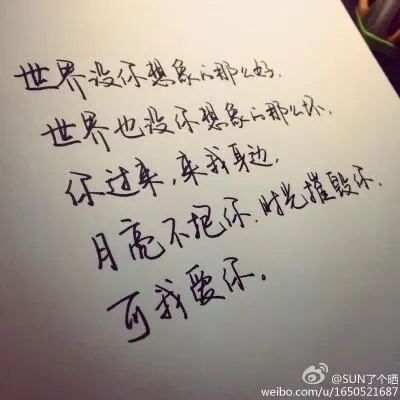 世界没你想象的那么好.
世界也没你想象的那么坏.
你过来,来我身边.
月亮不抱你.时光摧毁你.
可我爱你.
@SUN了个晒
weibo.com/u/1650521687